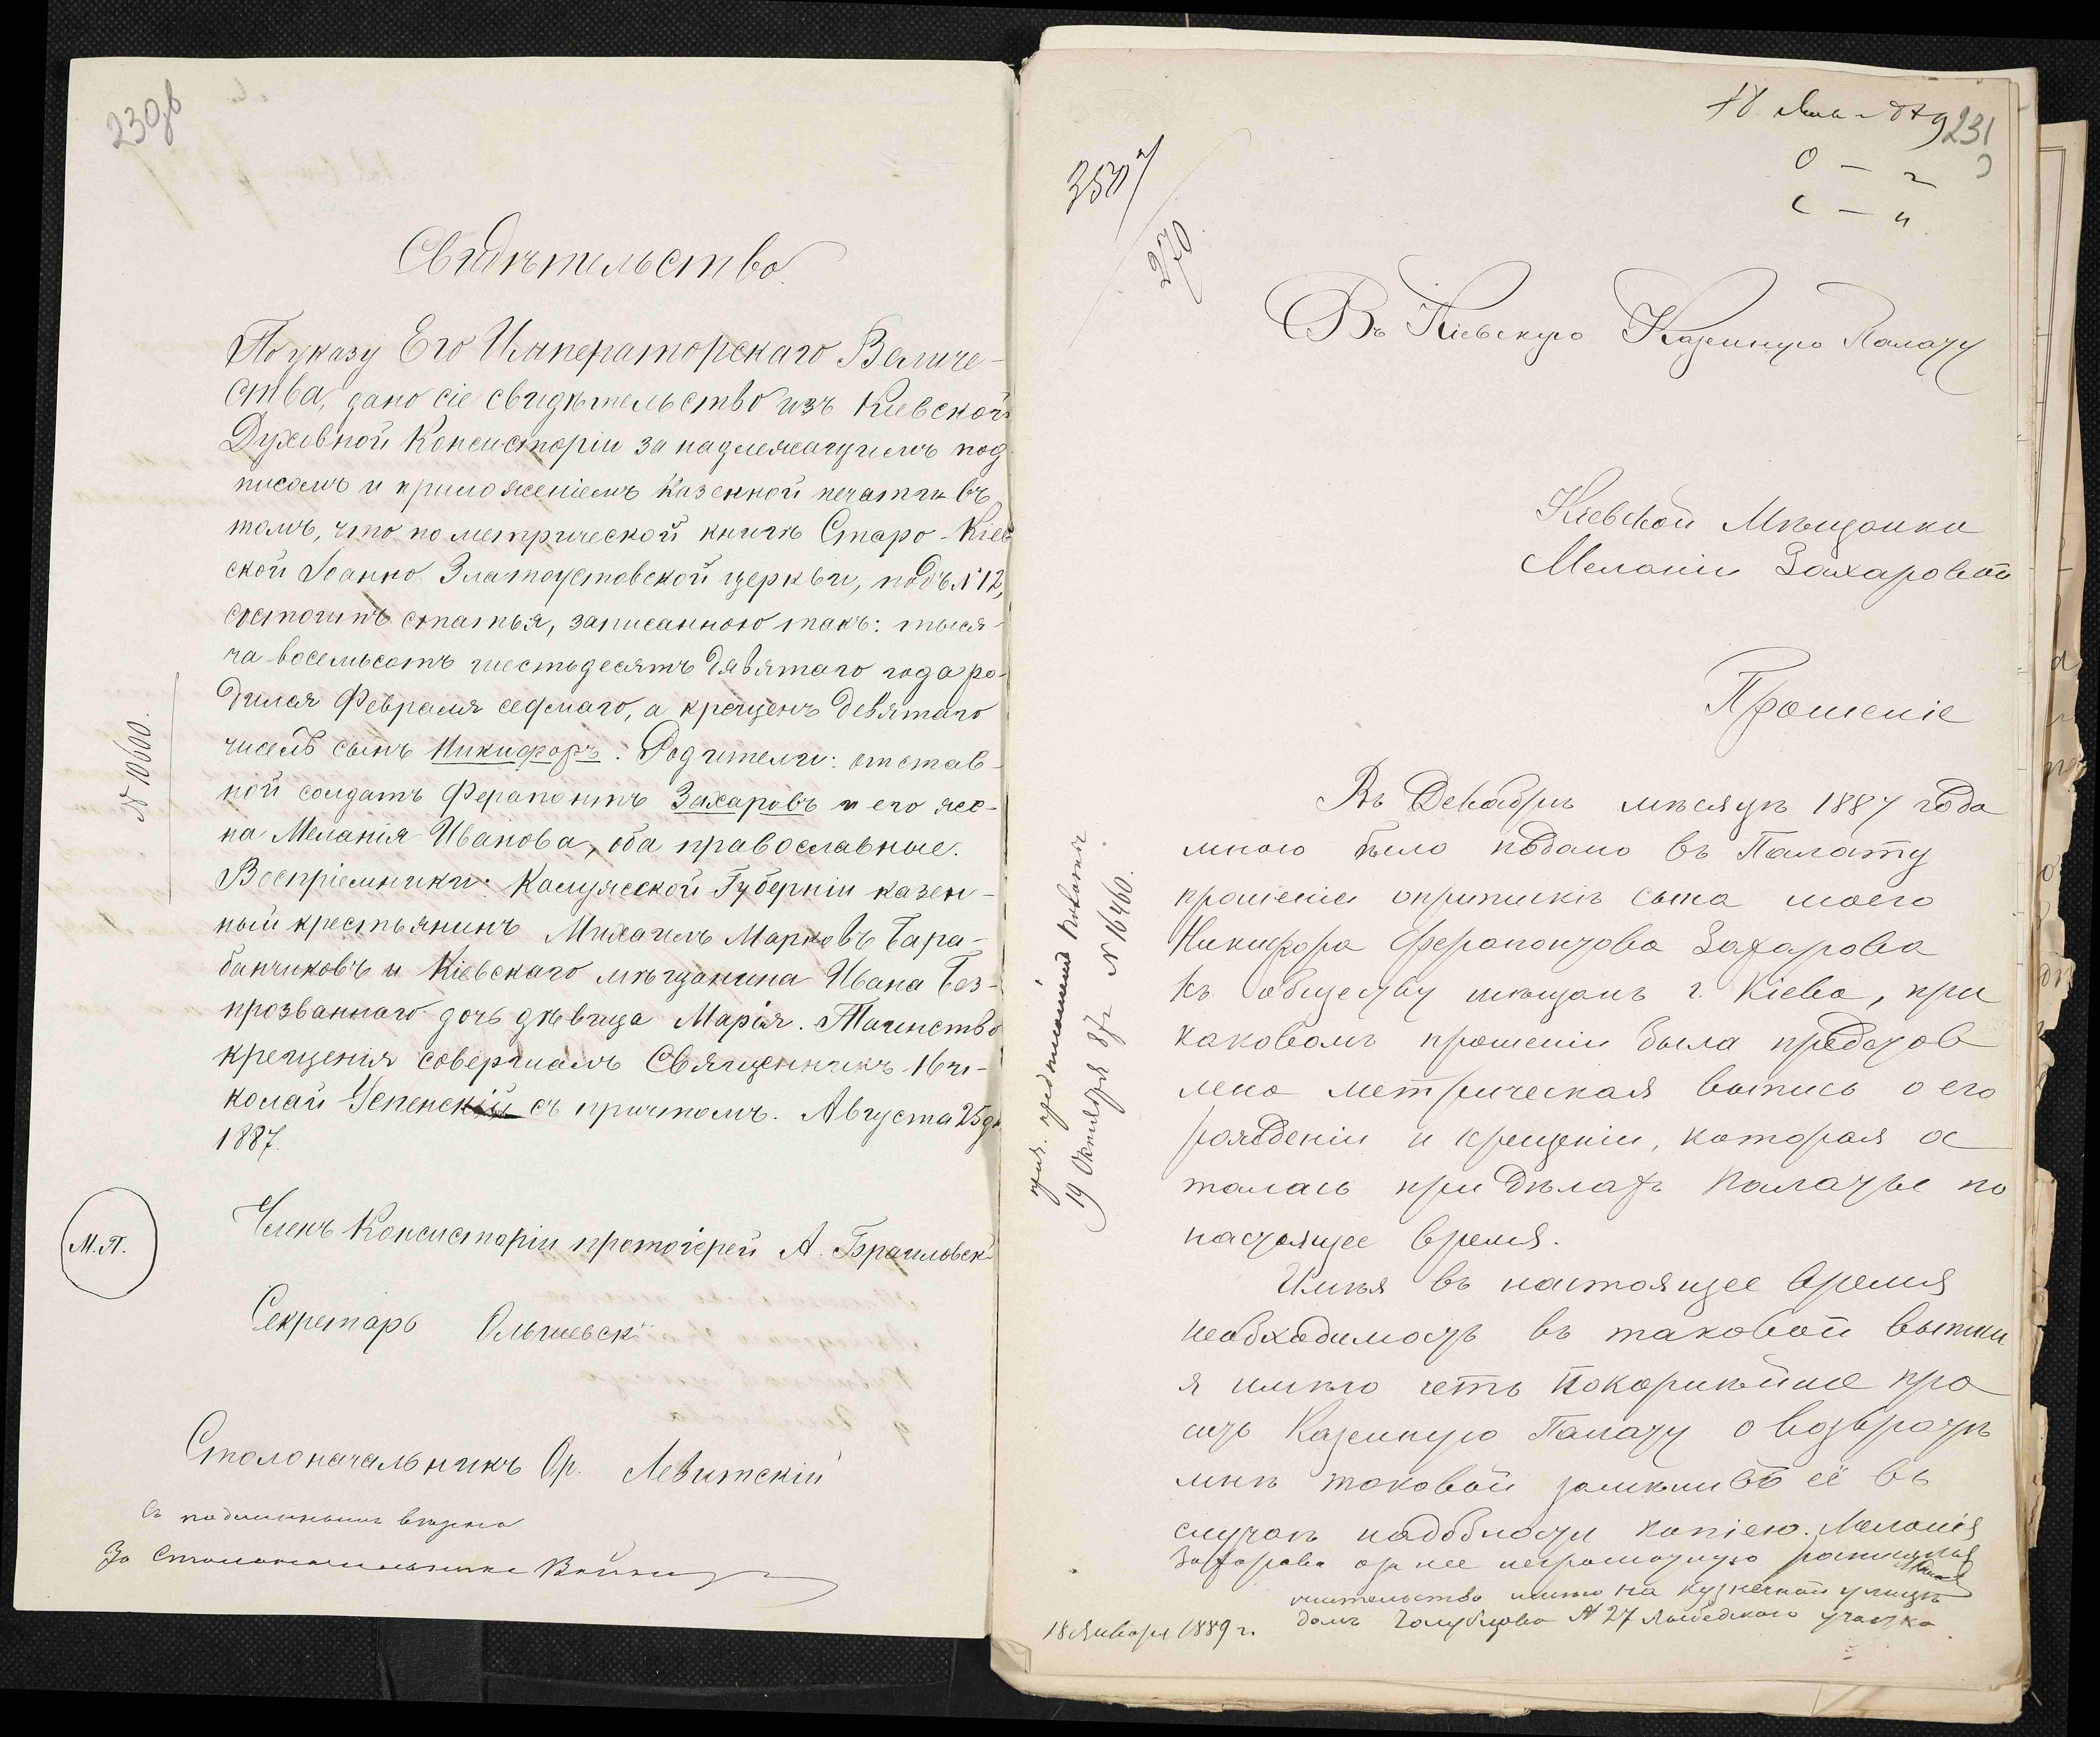 230об
Свидѣтельство.
По указу Его Императорскаго Величе-
ства, дано сіе свидѣтельство изъ Кіевской
Духовной Консисторіи за надлежащимъ под
писомъ и приложеніемъ казенной печати въ
томъ, что по метрической книгѣ Старо-Кіев
ской Іоанно Златоустовской церкви, подъ №12,
состоитъ статья, записанною такъ: тыся-
ча восемьсотъ шестьдесятъ девятаго года ро-
дился Февраля седмаго, а крещенъ девятаго
чиселъ сынъ Никифоръ. Родители: отстав-
ной солдатъ Ферапонтъ Захаровъ и его же-
на Меланія Иванова, оба православные.
Воспріемники: Калужской Губерніи казен-
ный крестьянинъ Михаилъ Марковъ Бара-
банчиковъ и Кіевскаго мѣщанина Ивана Без-
прозваннаго дочь дѣвица Марія. Таинство
крещенія совершалъ Священникъ Ни-
колай Успенскій съ причтомъ. Августа 25 дн
1887.
№ 10600.
М.П.
Членъ Консисторіи протоіерей А. Браиловск
Секретарь Ольшевск
Столоначальникъ Ор. Левитскій
Съ подлиннымъ вѣрно
За Столоначальника
18 Янв 89
231
350
270
Въ Кіевскую Казенную Палату
Кіевской Мѣщанки
Меланіи Захаровой
Прошеніе
Въ Декабрѣ мѣсяцѣ 1887 года
мною было подано въ Палату
прошеніе опрыпискѣ сына моего
Никифора Ферапонтова Захарова
къ обществу мѣщанъ г. Кіева, при
каковомъ прошеніи была предстов
лена метрическая выпись о его
рожденіи и крещеніи, которая ос
талась при дѣлахъ Палаты по
настоящее время.
Имѣя въ настоящее время
необходимость въ таковой выписи
я имѣю честь покорнѣйше про
сить Казенную Палату о возвратѣ
мнѣ таковой замѣнивъ её въ
случаѣ надобности копіею. Меланія
Захарова а за нее неграмотную росписался
жительство имѣю на Кузнечной улицѣ
домъ Голубцова № 27 Лыбедскаго участка
18 Января 1889 г.
19 Октября 87 г. № 16460.